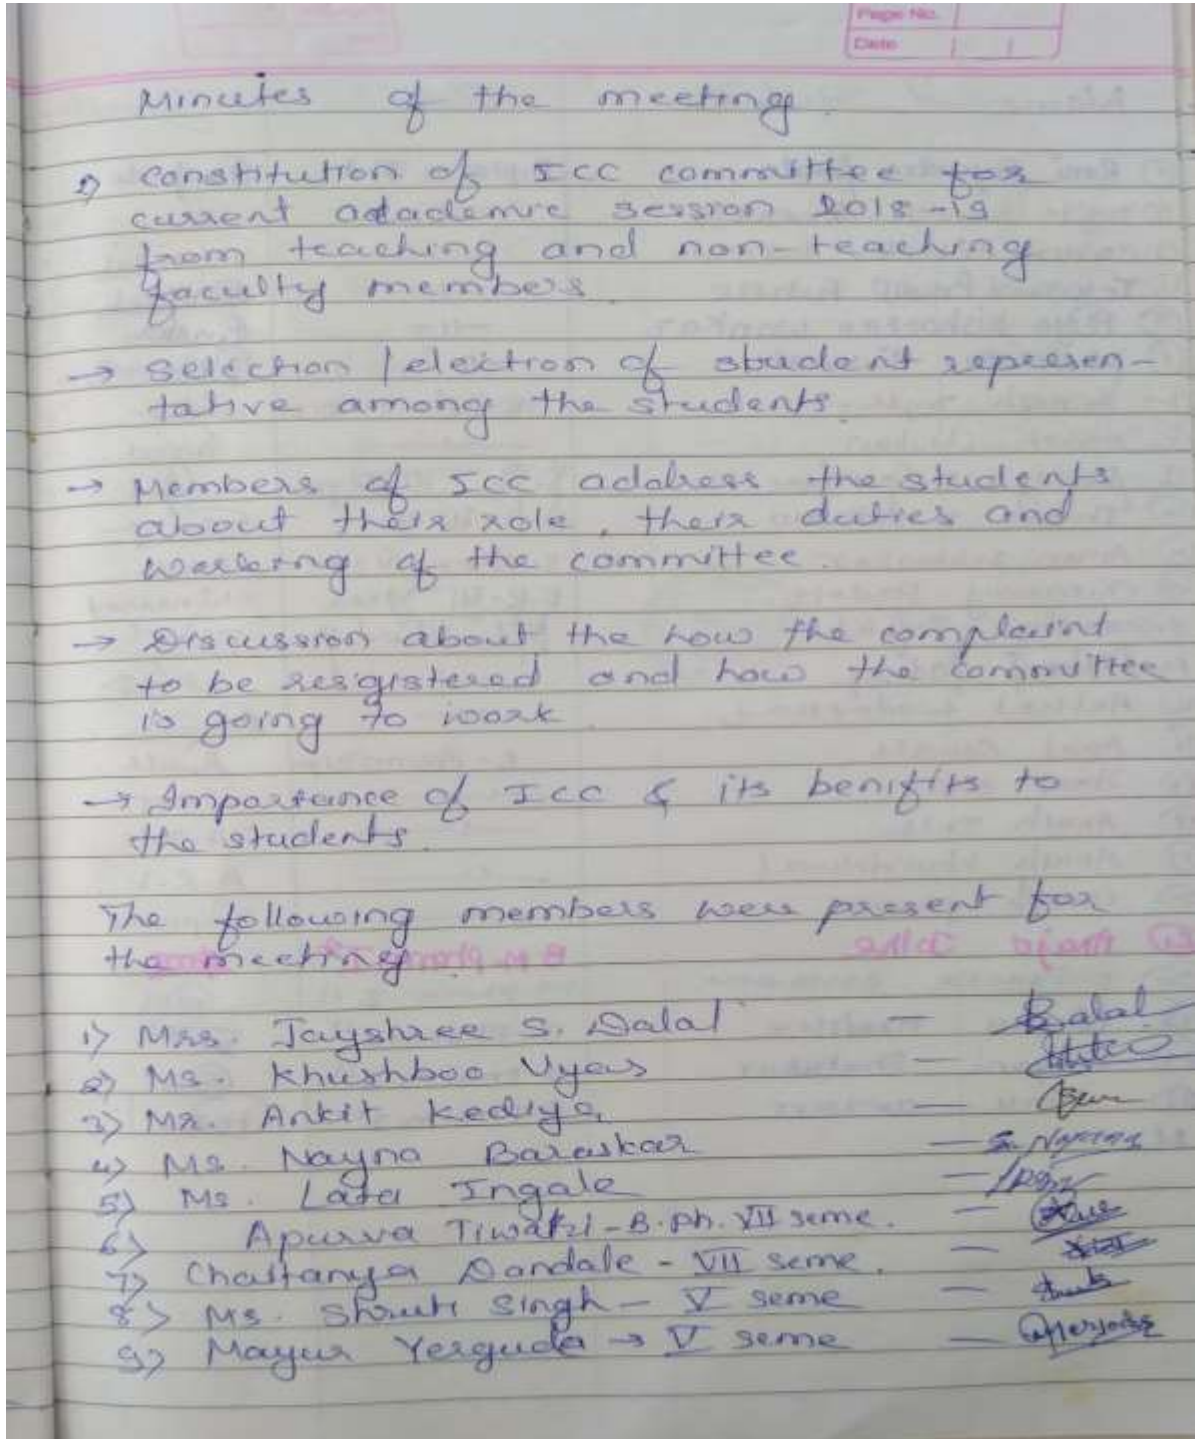 Page No.
Date
Minutes of the meeting.
1) Constitution of ICC committee for
current adademic session 2018-19
from teaching and non-teaching
faculty members.
→ Selection / election of student represen-
tative among the students.
→ Members of ICC address the students
about their role, their duties and
working of the committee.
→ Discussion about the how the complaint
to be resgistered and how the committee
is going to work.
→ Importance of ICC & its benifits to
the students.
The following members were present for
the meeting.
1) Mrs. Jayshree S. Dalal - Dalal
2) Ms. Khushboo Vyas -
3) Mr. Ankit Kediya -
4) Ms. Nayna Baraskar -
5) Ms. Lata Ingale -
6) Apurva Tiwari - B.Ph. VII seme. -
7) Chaitanya Dandale - VII seme. -
8) Ms. Shruti Singh - V seme -
9) Mayur Yerguda → V seme -